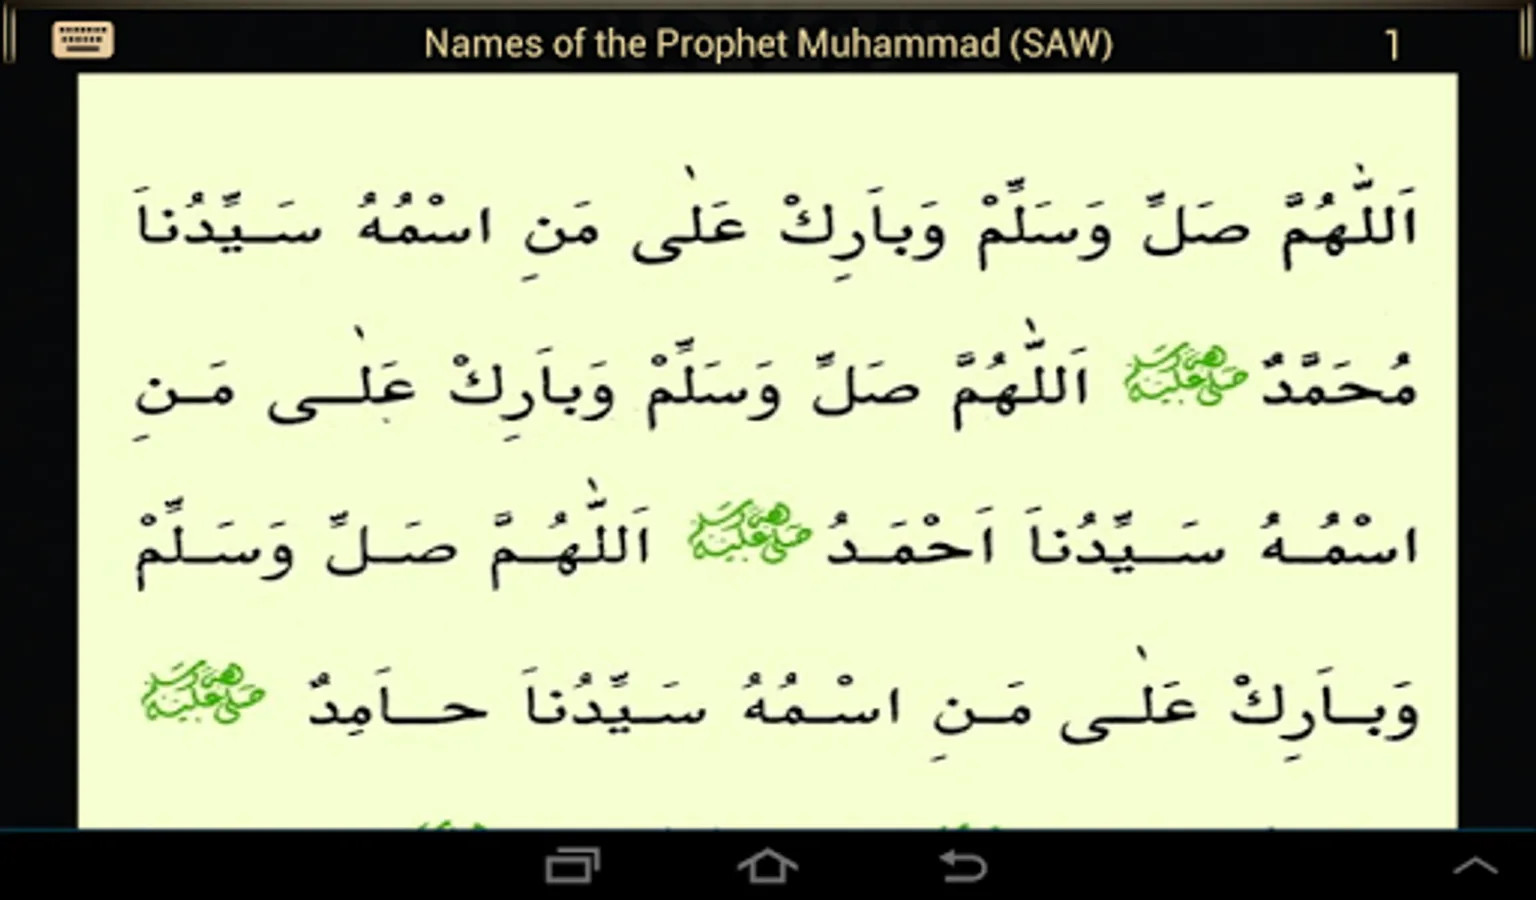 Names of the Prophet Muhammad (SAW) 1
اَللّٰهُمَّ صَلِّ وَسَلِّمْ وَباَرِكْ عَلٰى مَنِ اسْمُهُ سَيِّدُناَ
مُحَمَّدٌ صَلَّى اللهُ عَلَيْهِ وَسَلَّمَ اَللّٰهُمَّ صَلِّ وَسَلِّمْ وَباَرِكْ عَلٰى مَنِ
اسْمُهُ سَيِّدُناَ اَحْمَدُ صَلَّى اللهُ عَلَيْهِ وَسَلَّمَ اَللّٰهُمَّ صَلِّ وَسَلِّمْ
وَباَرِكْ عَلٰى مَنِ اسْمُهُ سَيِّدُناَ حاَمِدٌ صَلَّى اللهُ عَلَيْهِ وَسَلَّمَ